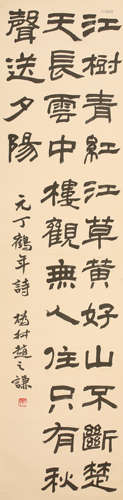 江樹青紅江草黃好山不斷楚
天長雲中樓觀無人住只有秋
聲送夕陽
元丁鶴年詩 撝叔趙之謙